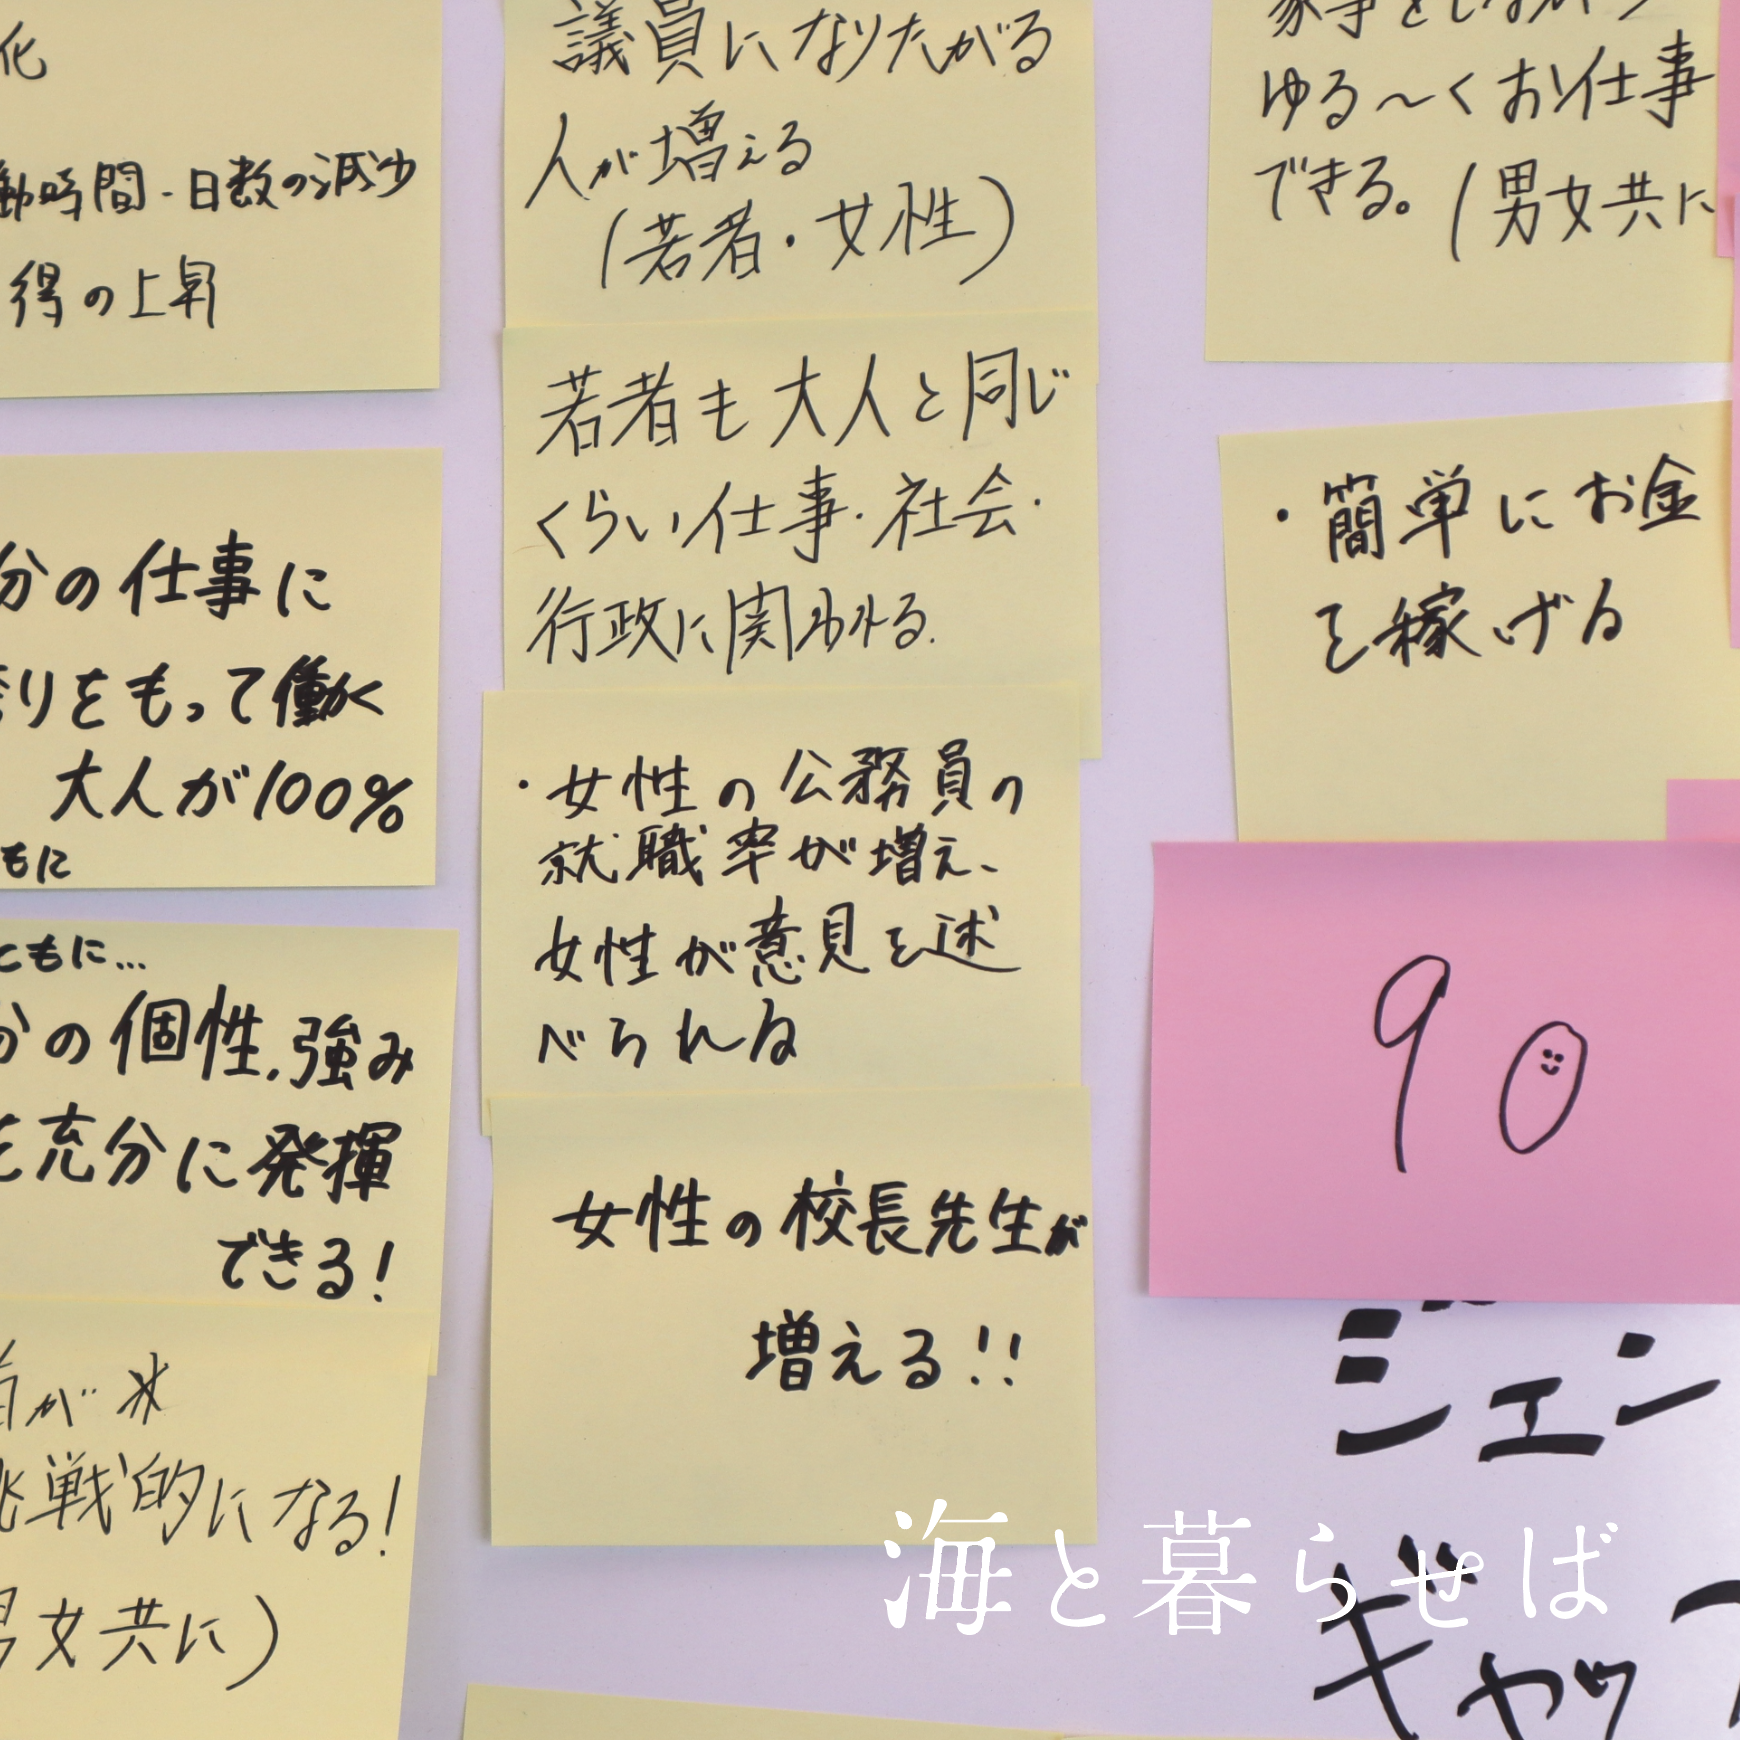 化
動時間・日数の減少
得の上昇
分の仕事に
りをもって働く
大人が100%
もに
ともに…
分の個性、強み
を充分に発揮
できる!
が
挑戦的になる!
男女共に)
議員になりたがる
人が増える
(若者・女性)
若者も大人と同じ
くらい仕事・社会・
行政に関われる.
・女性の公務員の
就職率が増え、
女性が意見を述
べられる
女性の校長先生が
増える!!
家事をしながら
ゆる〜くお仕事
できる。(男女共に
・簡単にお金
を稼げる
90
ジェン
ギャッ
海と暮らせば